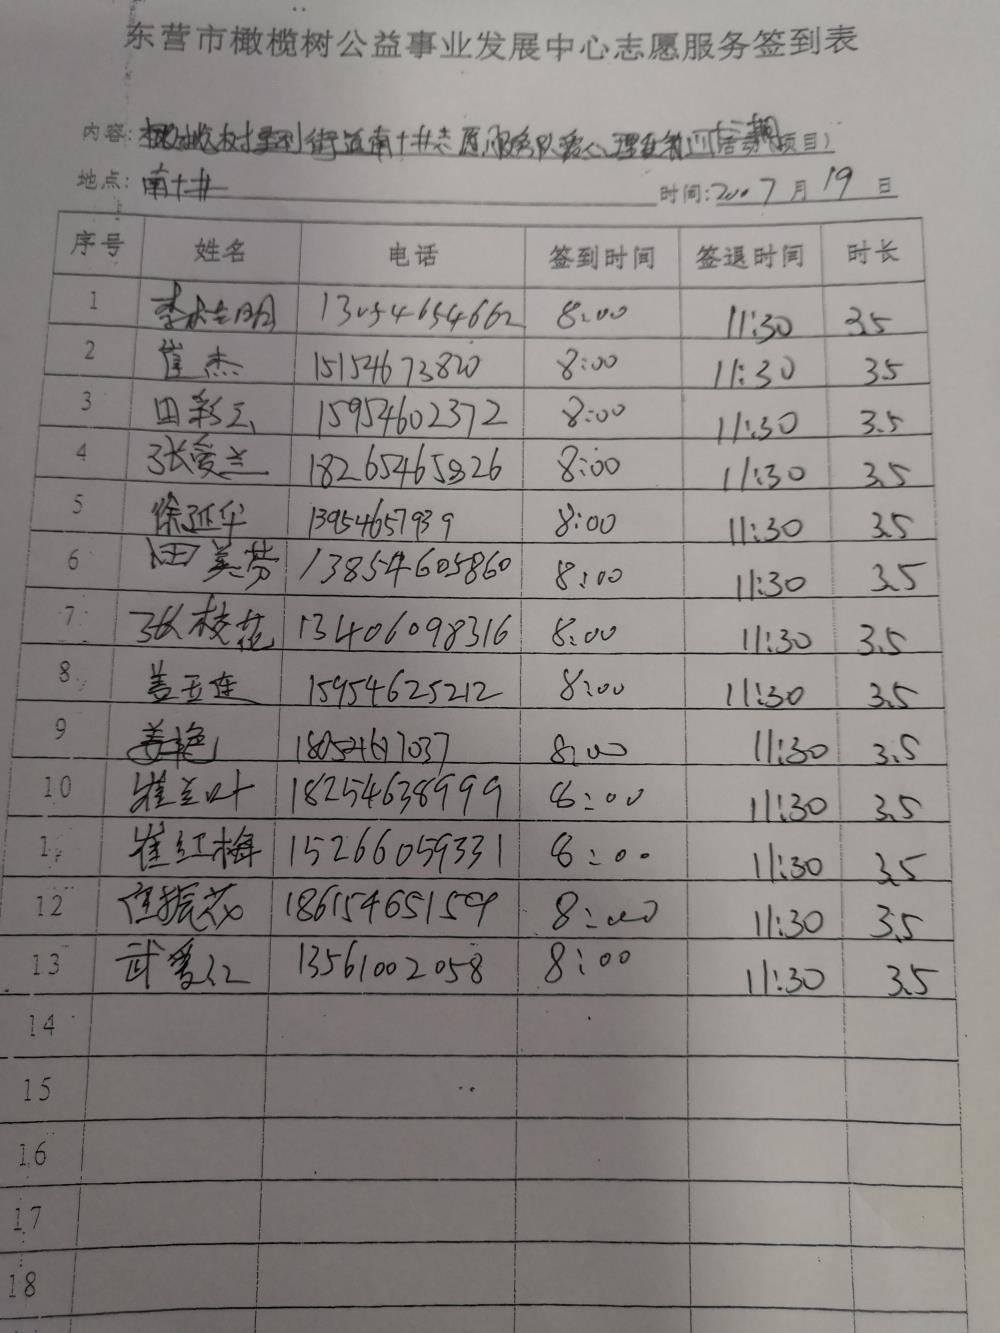 东营市橄榄树公益事业发展中心志愿服务签到表
内容: 橄榄树垦利街道南十井志愿服务队爱心理发 项目)
地点: 南十井 时间: 20 7月19日
序号 姓名 电话 签到时间 签退时间 时长
1 13054654662 8:00 11:30 3.5
2 崔杰 15154673820 8:00 11:30 3.5
3 田彩云 15954602372 8:00 11:30 3.5
4 张爱兰 18265465826 8:00 11:30 3.5
5 徐延华 13954657939 8:00 11:30 3.5
6 田美芬 13854605860 8:00 11:30 3.5
7 张校花 13406098316 8:00 11:30 3.5
8 盖玉连 15954625212 8:00 11:30 3.5
9 姜艳 8:00 11:30 3.5
10 崔兰叶 18254638999 8:00 11:30 3.5
1 崔红梅 15266059331 8:00 11:30 3.5
12 振花 18615465159 8:00 11:30 3.5
13 武爱红 13561002058 8:00 11:30 3.5
14
15
16
17
18